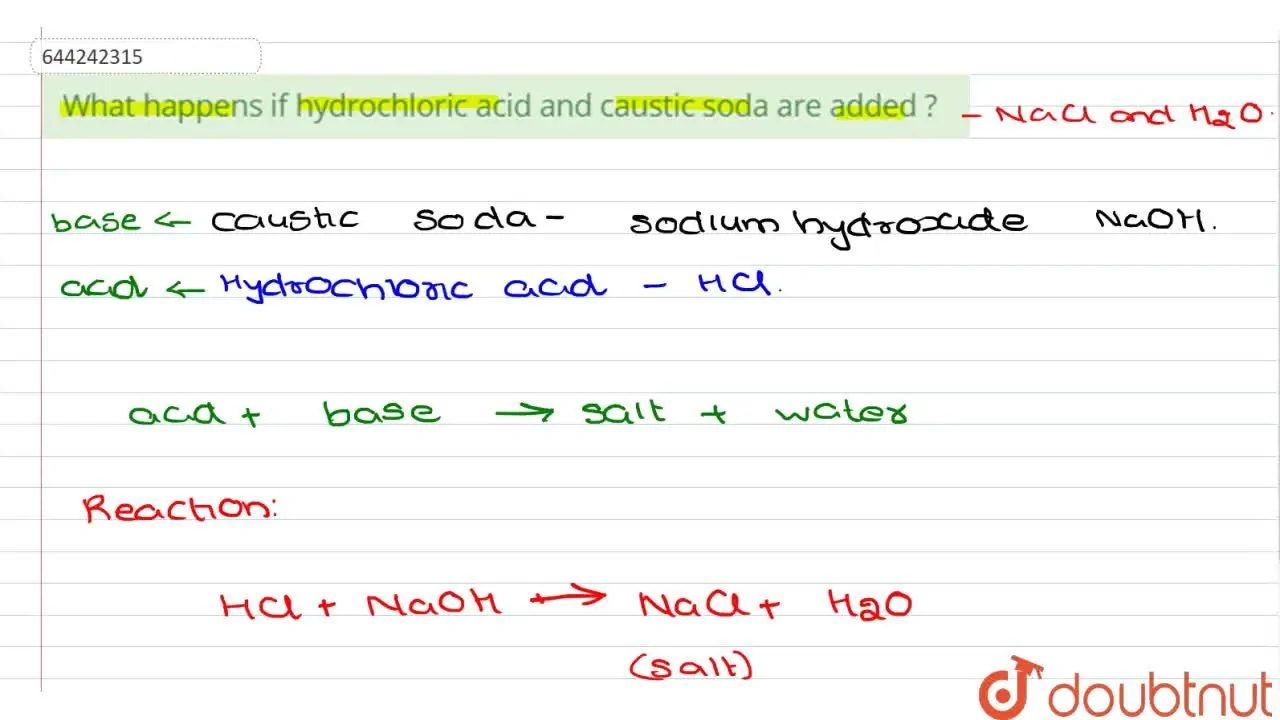 644242315
What happens if hydrochloric acid and caustic soda are added ? - NaCl and H2O.
base ← caustic soda - sodium hydroxide NaOH.
acid ← Hydrochloric acid - HCl.
acid + base → salt + water
Reaction:
HCl + NaOH → NaCl + H2O
(salt)
doubtnut